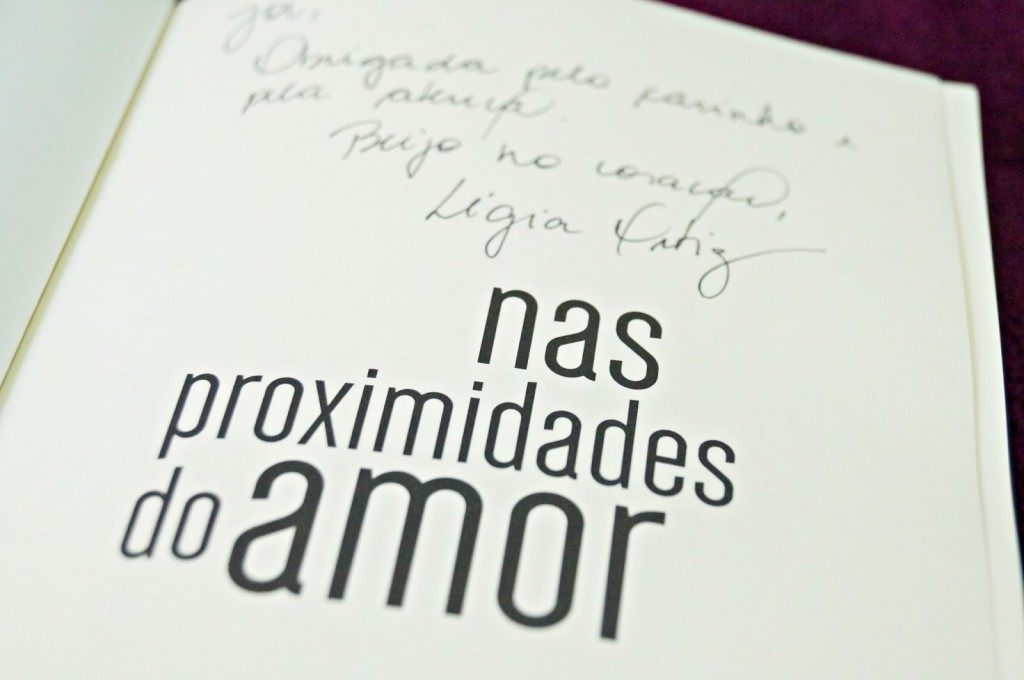 Obrigada pelo carinho e
pela atenção.
Beijo no coração,
Ligia Ortiz
nas
proximidades
do amor